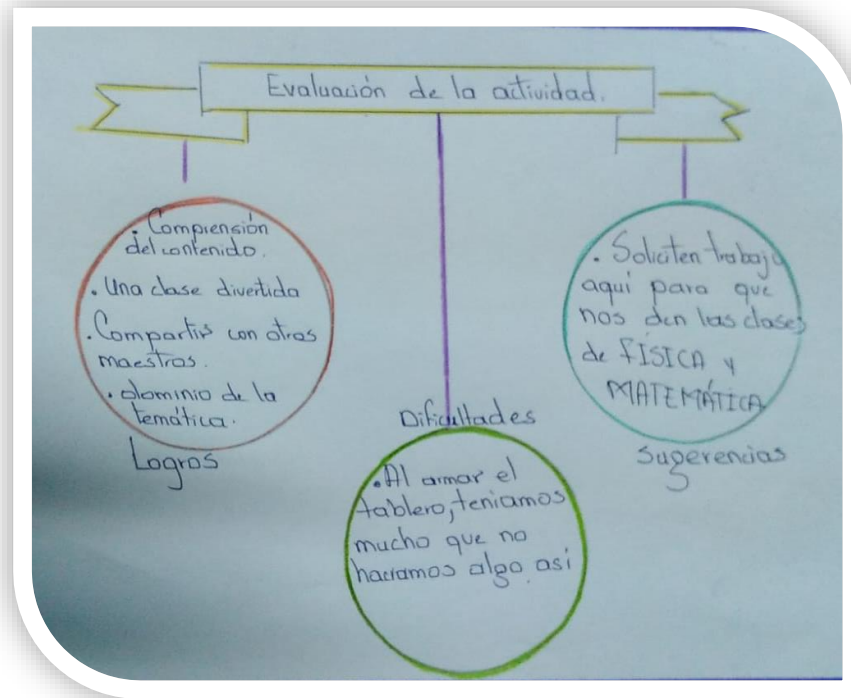 Evaluación de la actividad.
. Comprensión
del contenido.
. Una clase divertida
. Compartir con otros
maestros.
. dominio de la
temática.
Logros
Dificultades
. Al armar el
tablero, teniamos
mucho que no
haciamos algo asi
. Soliciten trabajo
aquí para que
nos den las clases
de FÍSICA y
MATEMÁTICA
Sugerencias